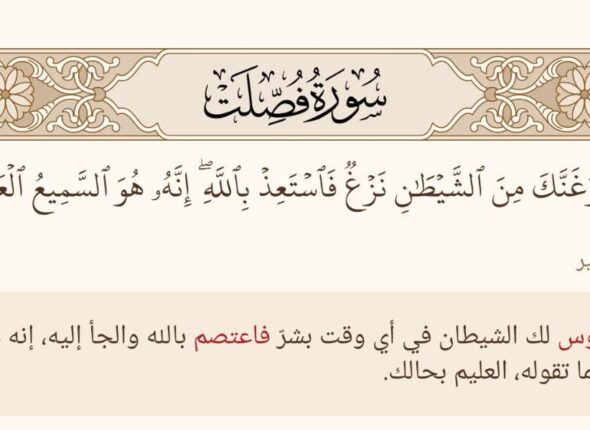 سُورَةُ فُصِّلَتْ
مِنَ ٱلشَّيْطَٰنِ نَزْغٌ فَٱسْتَعِذْ بِٱللَّهِ ۖ إِنَّهُۥ هُوَ ٱلسَّمِيعُ
لك الشيطان في أي وقت بشرّ فاعتصم بالله والجأ إليه، إنه
تقوله، العليم بحالك.